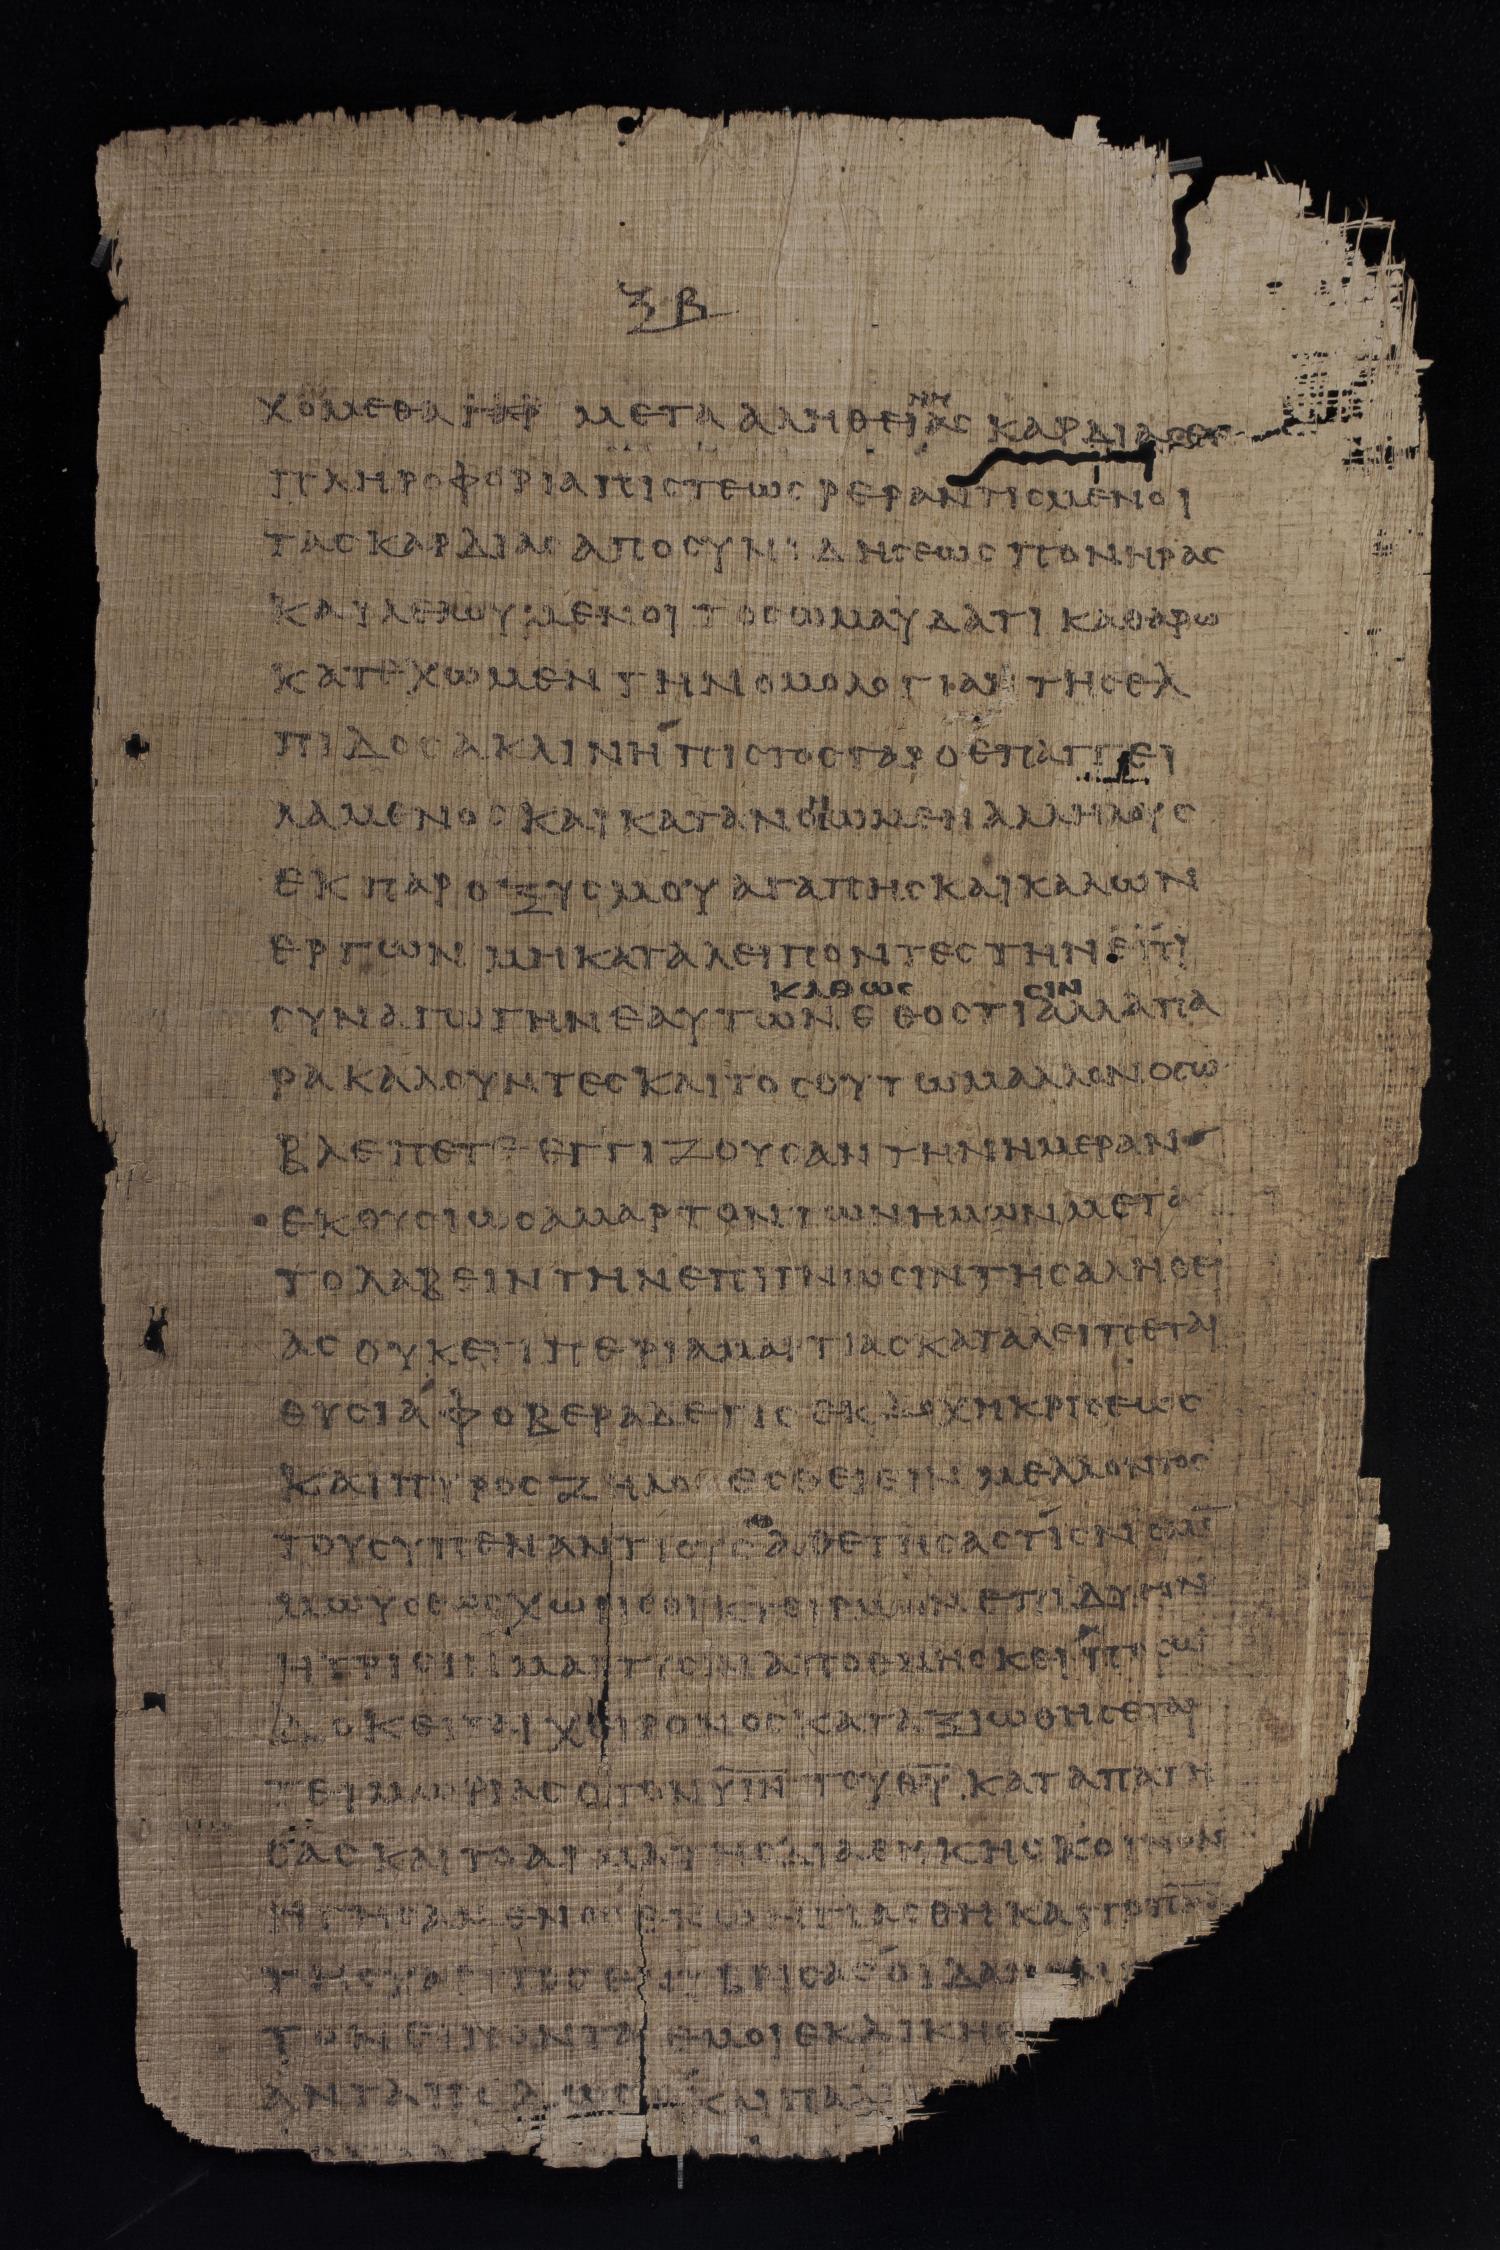 ξβ
χομεθα γαρ μετα αληθεινηας καρδιας εν
πληροφορια πιστεως ρεραντισμενοι
τας καρδιας απο συνιδησεως πονηρας
και λελουσμενοι το σωμα υδατι καθαρω
κατεχωμεν την ομολογιαν της ελ
πιδος ακλινη πιστος γαρ ο επαγγει
λαμενος και κατανοωμεν αλληλους
εκ παροξυσμου αγαπης και καλων
εργων μη καταλειποντες την επι
καθως σιν
συναγωγην εαυτων εθος τι αλλα πα
ρακαλουντες και τοσουτω μαλλον οσω
βλεπετε εγγιζουσαν την ημεραν
εκουσιως αμαρτοντων ημων μετα
το λαβειν την επιγνωσιν της αληθει
ας ουκετι περι αμαρτιας καταλειπεται
θυσια φοβερα δε τις εκδοχη κρισεως
και πυρος ζηλος εσθειειν μελλοντος
τους υπεναντιους αθετησας τις νομο
μωυσεως χωρις οικτειρμων επι δυσιν
η τρισιν μαρτυσιν αποθνησκει ποσω
δοκειται χειρονος καταξιωθησεται
τειμωριας ο τον υιν του θυ καταπατη
σας και το αιμα της διαθηκης κοινον
ηγησαμενος εν ω ηγιασθη και το πνα
της χαριτος ενυβρισας οιδαμεν
τον ειποντα εμοι εκδικησ
ανταποδωσω και παλι